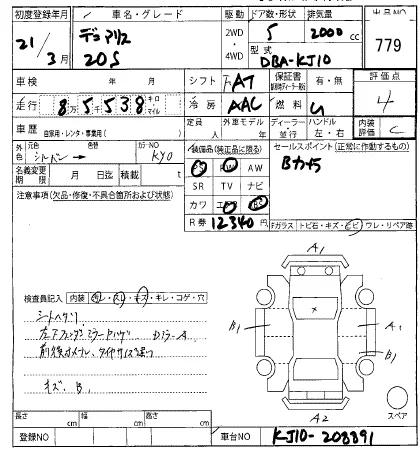 初度登録年月 車名・グレード 駆動 ドア数・形状 排気量 出品NO
21/3月 デュアリス 20S 2WD・4WD 5 2000cc 779
型式 DBA-KJ10
車検 年 月 シフト FAT 保証書 有・無 評価点
走行 8万5千538 キロ マイル 冷房 AAC 燃料 G 4
車歴 自家用・レンタ・事業用( ) 定員 人 外車モデル 年 ディーラー 並行 ハンドル 左・右 内装評価 C
外色 元色 シルバー→ 色替 カラーNO KY0
装備品(純正品に限る) セールスポイント(正常に作動するもの)
PS PW AW Bカメラ
名義変更期限 月 日迄 積載 t
SR TV ナビ
注意事項(欠品・修復・不具合箇所および状態)
カワ エアB ABS
R券 12340円
Fガラス トビ石・キズ・ヒビ ワレ・リペア跡
検査員記入欄 内装 ヨゴレ・スレ・キズ・キレ・コゲ・穴
シートヘタリ
左Aフェンダーミラー
前後ホイール、タイヤサイズ違い
キズ、B
A1
B1
A1
B1
A2
スペア
長さ cm 幅 cm 高さ cm
登録NO 車台NO KJ10-208891